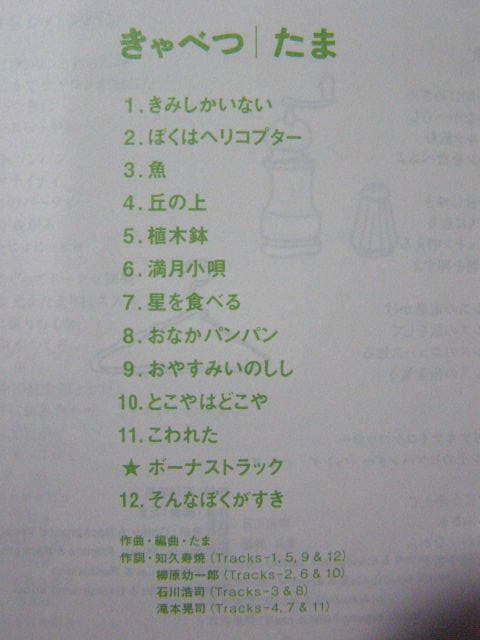 きゃべつ｜たま
1.きみしかいない
2.ぼくはヘリコプター
3.魚
4.丘の上
5.植木鉢
6.満月小唄
7.星を食べる
8.おなかパンパン
9.おやすみいのしし
10.とこやはどこや
11.こわれた
★ボーナストラック
12.そんなぼくがすき
作曲・編曲・たま
作詞・知久寿焼(Tracks-1, 5, 9 & 12)
柳原幼一郎(Tracks-2, 6 & 10)
石川浩司(Tracks-3 & 8)
滝本晃司(Tracks-4, 7 & 11)